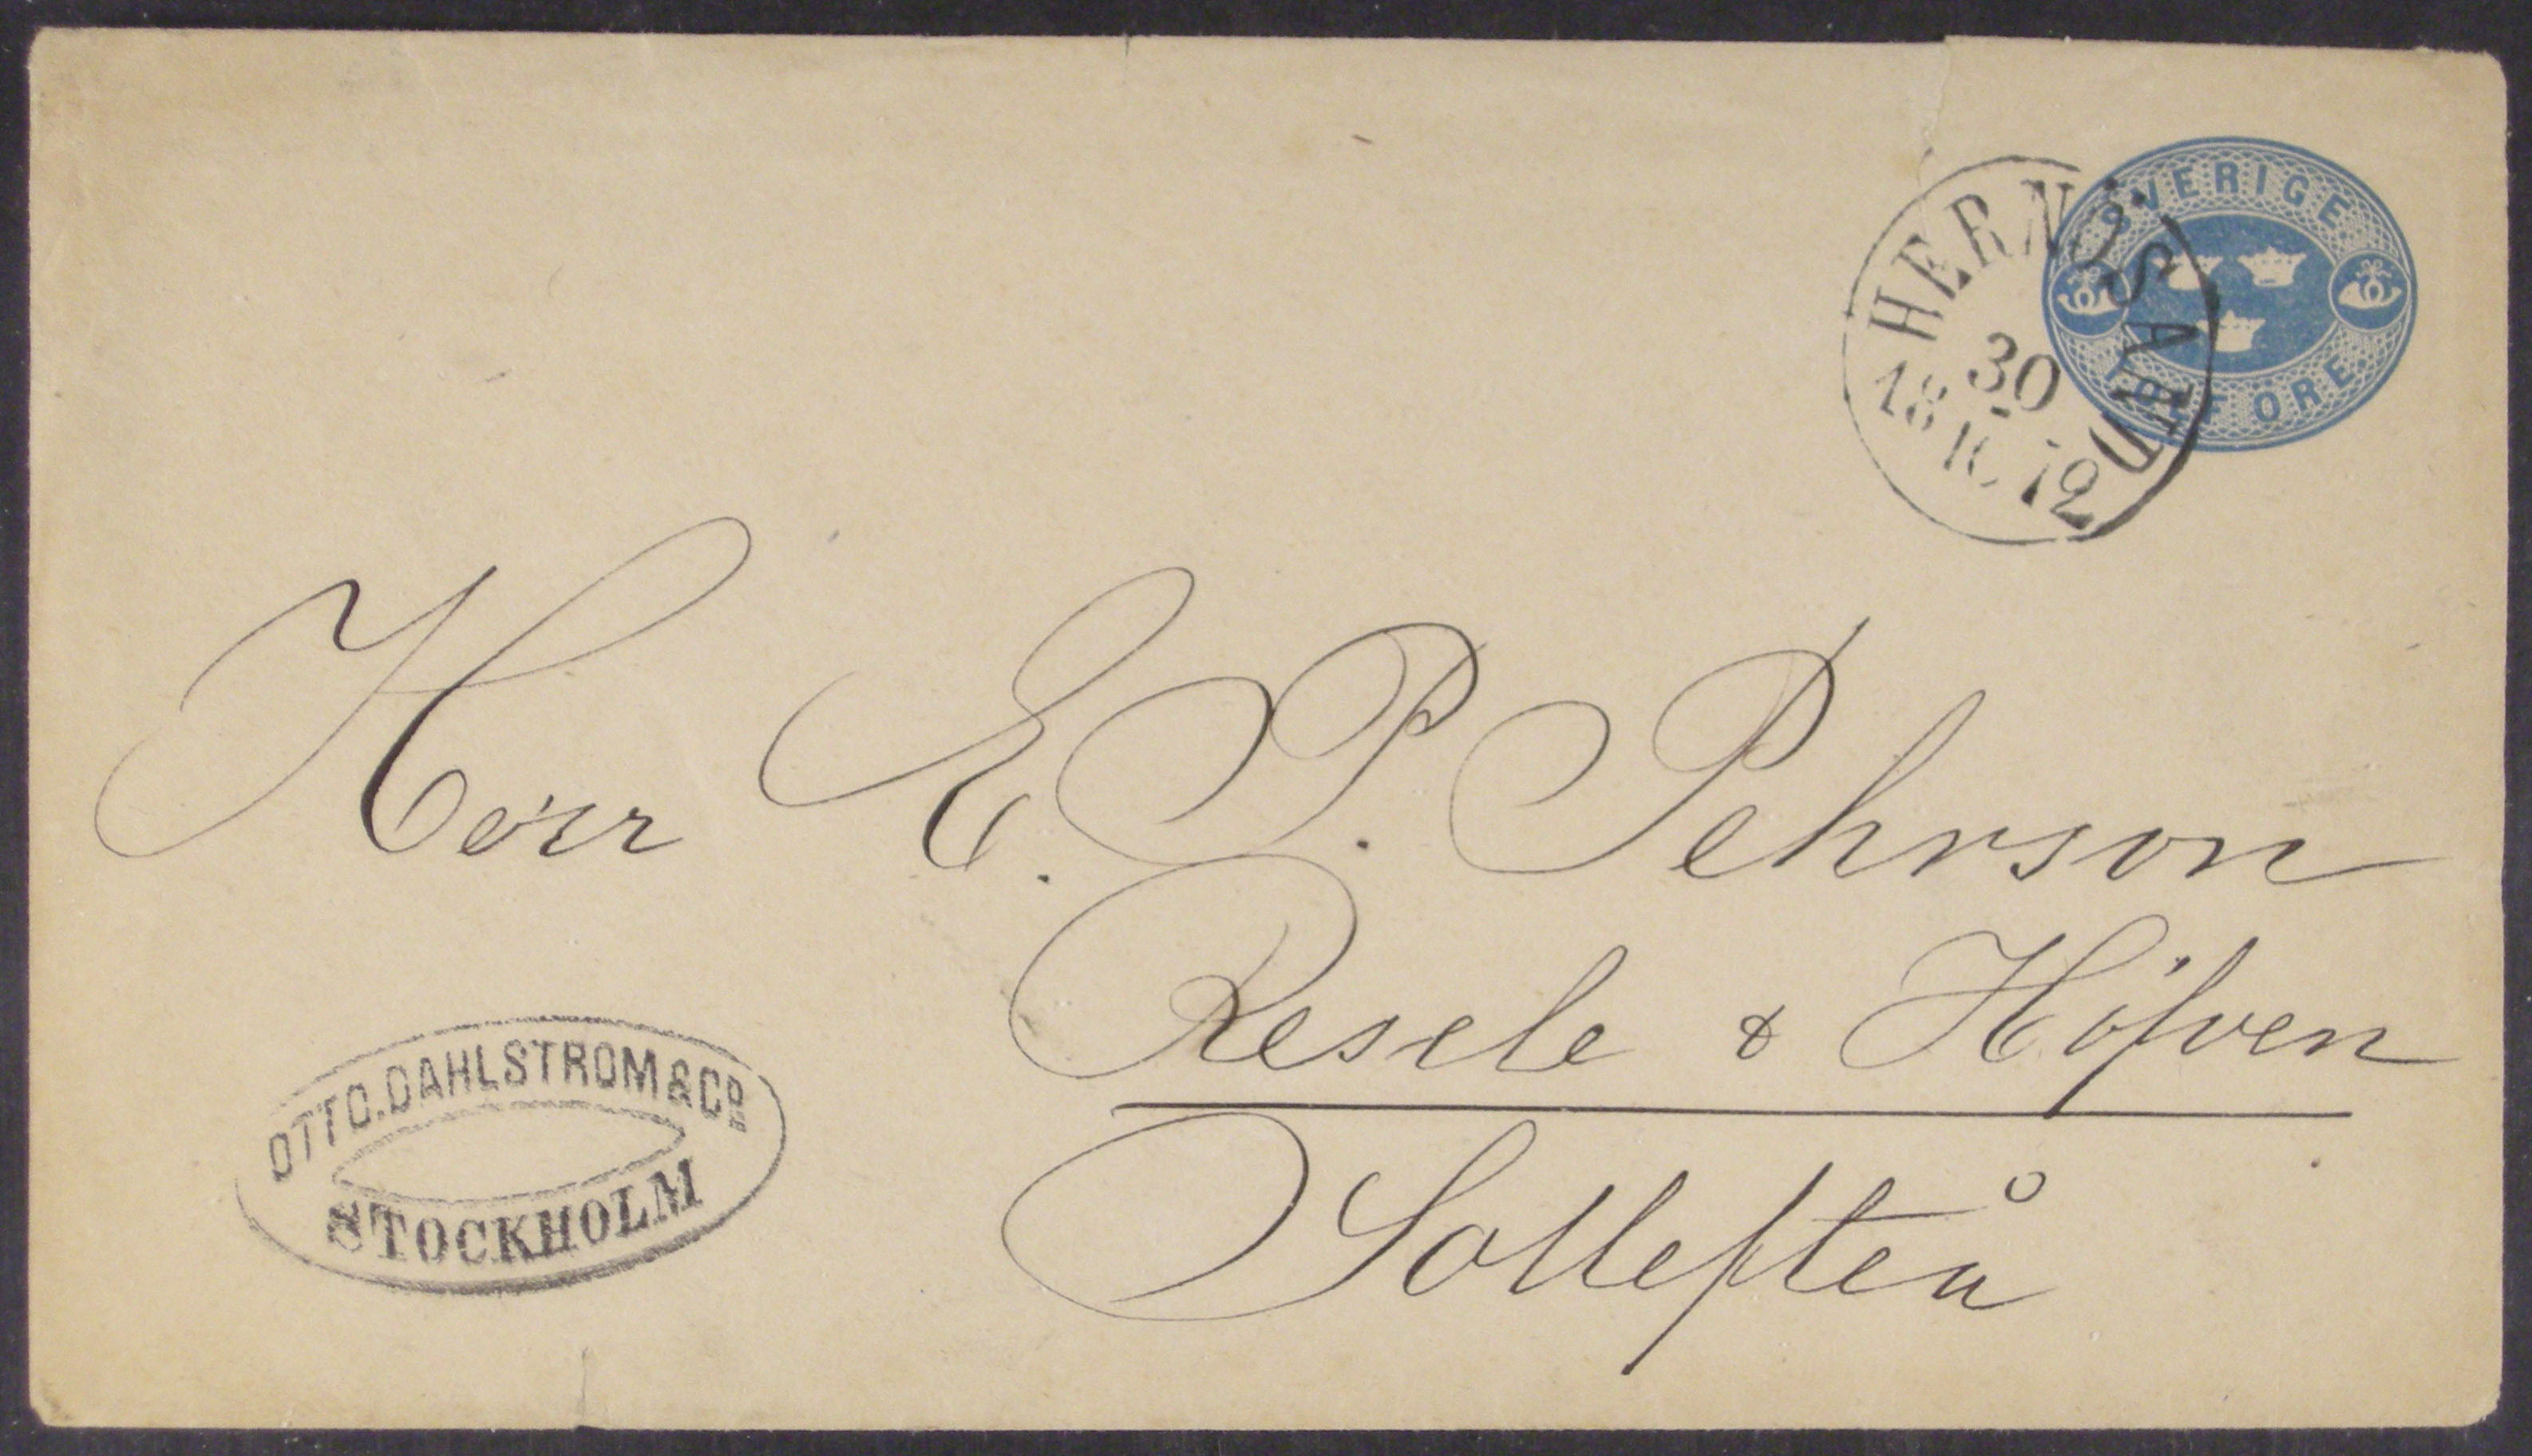 SVERIGE
TOLF ÖRE
HERNÖSAND
30
18 10 72
Herr E. P. Pehrson
Resele & Höfven
Sollefteå
OTTO. DAHLSTROM & Co.
STOCKHOLM